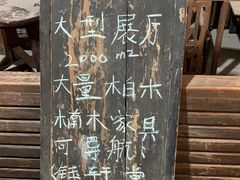 大型展厅
2000m2
大量柏木
楠木家具
可寻航